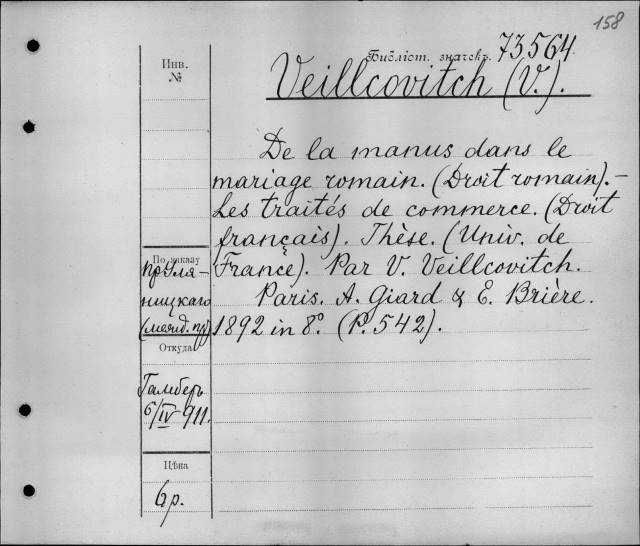 158
Библіот. значекъ 73564
Инв.
№
Veillcovitch (V.).
De la manus dans le
mariage romain. (Droit romain).-
Les traités de commerce. (Droit
français). Thèse. (Univ. de
France). Par V. Veillcovitch.
Paris. A. Giard & E. Brière.
1892 in 8º. (P. 542).
По заказу
пр Уля-
ницкаго
(межд. пр)
Откуда
Гамберъ
6/IV 911.
Цѣна
6р.